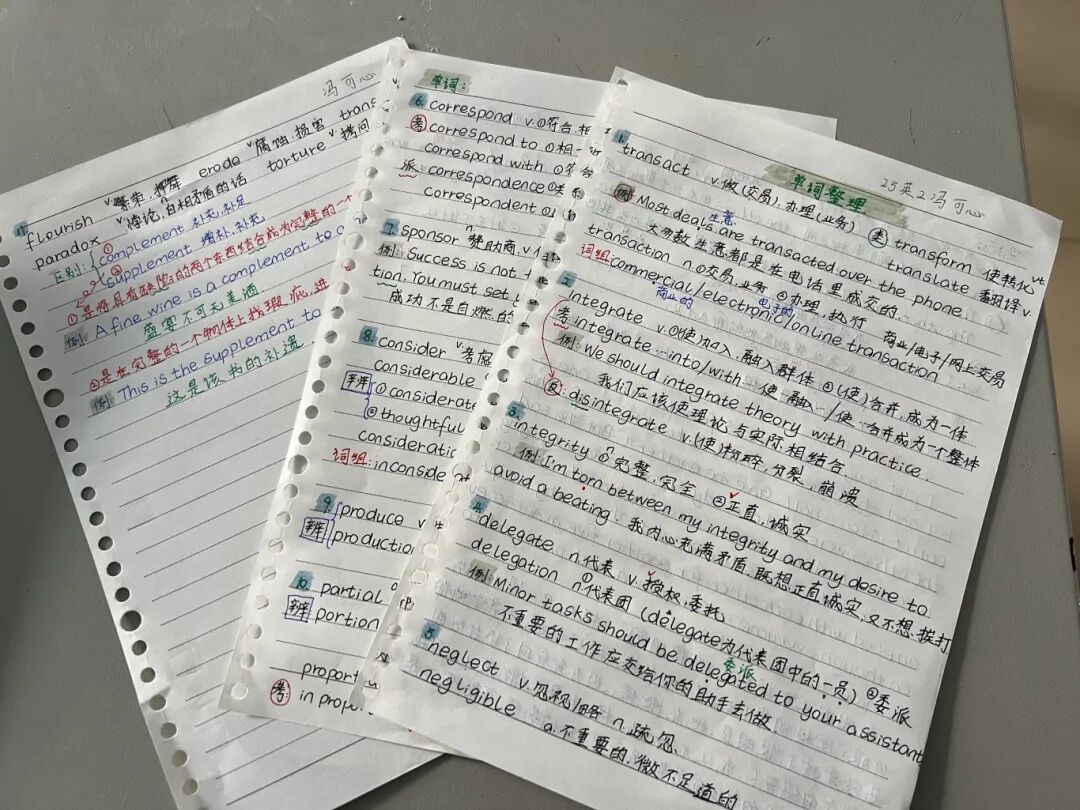 冯可心
11. flourish v.繁荣,挥舞 erode v.腐蚀,损害 trans
paradox n.悖论,自相矛盾的话 torture v.拷问
区别: ① complement 补充,补足
② supplement 增补,补充
①是将具有缺陷的两个东西结合成为完整的一个
例: A fine wine is a complement to a
盛宴不可无美酒
②是在完整的一个物体上找瑕疵,进
例: This is the supplement to
这是该书的补遗
单词:
6. correspond v.①符合,相
考 correspond to ①相一
correspond with ①符合
派: correspondence ①
correspondent ①
7. sponsor n.赞助商 v.
例: Success is not
tion. You must set
成功不是自燃的
8. consider v.考虑
considerable
辨 ① considerate
② thoughtful
consideratio
词组: inconside
9. produce v.
辨 production
10. partial a
辨 portion
proport
考: in propor
单词整理 25英2冯可心
1. transact v.做(交易),办理(业务) 类 transform 使转化 vt.
translate 翻译 v.
例 Most deals are transacted over the phone.
生意
大多数生意都是在电话里成交的.
transaction n.①交易,业务 ②办理,执行
词组: commercial/electronic/online transaction 商业/电子/网上交易
商业的 电子的
2. integrate v.①(使)加入,融入群体 ②(使)合并,成为一体
考 integrate…into/with…使…融入…/使…合并成为一个整体
例: We should integrate theory with practice.
我们应该使理论与实际相结合
反: disintegrate v.(使)粉碎,分裂,崩溃
3. integrity n.①完整,完全 ②正直,诚实
例 I'm torn between my integrity and my desire to
avoid a beating. 我内心充满矛盾,既想正直诚实,又不想挨打
4. delegate n.代表 v.授权,委托
delegation n.①代表团 (delegate为代表团中的一员) ②委派
例: Minor tasks should be delegated to your assistant
委派
不重要的工作应交给你的助手去做.
5. neglect v.忽视/略 n.疏忽
negligible a.不重要的,微不足道的